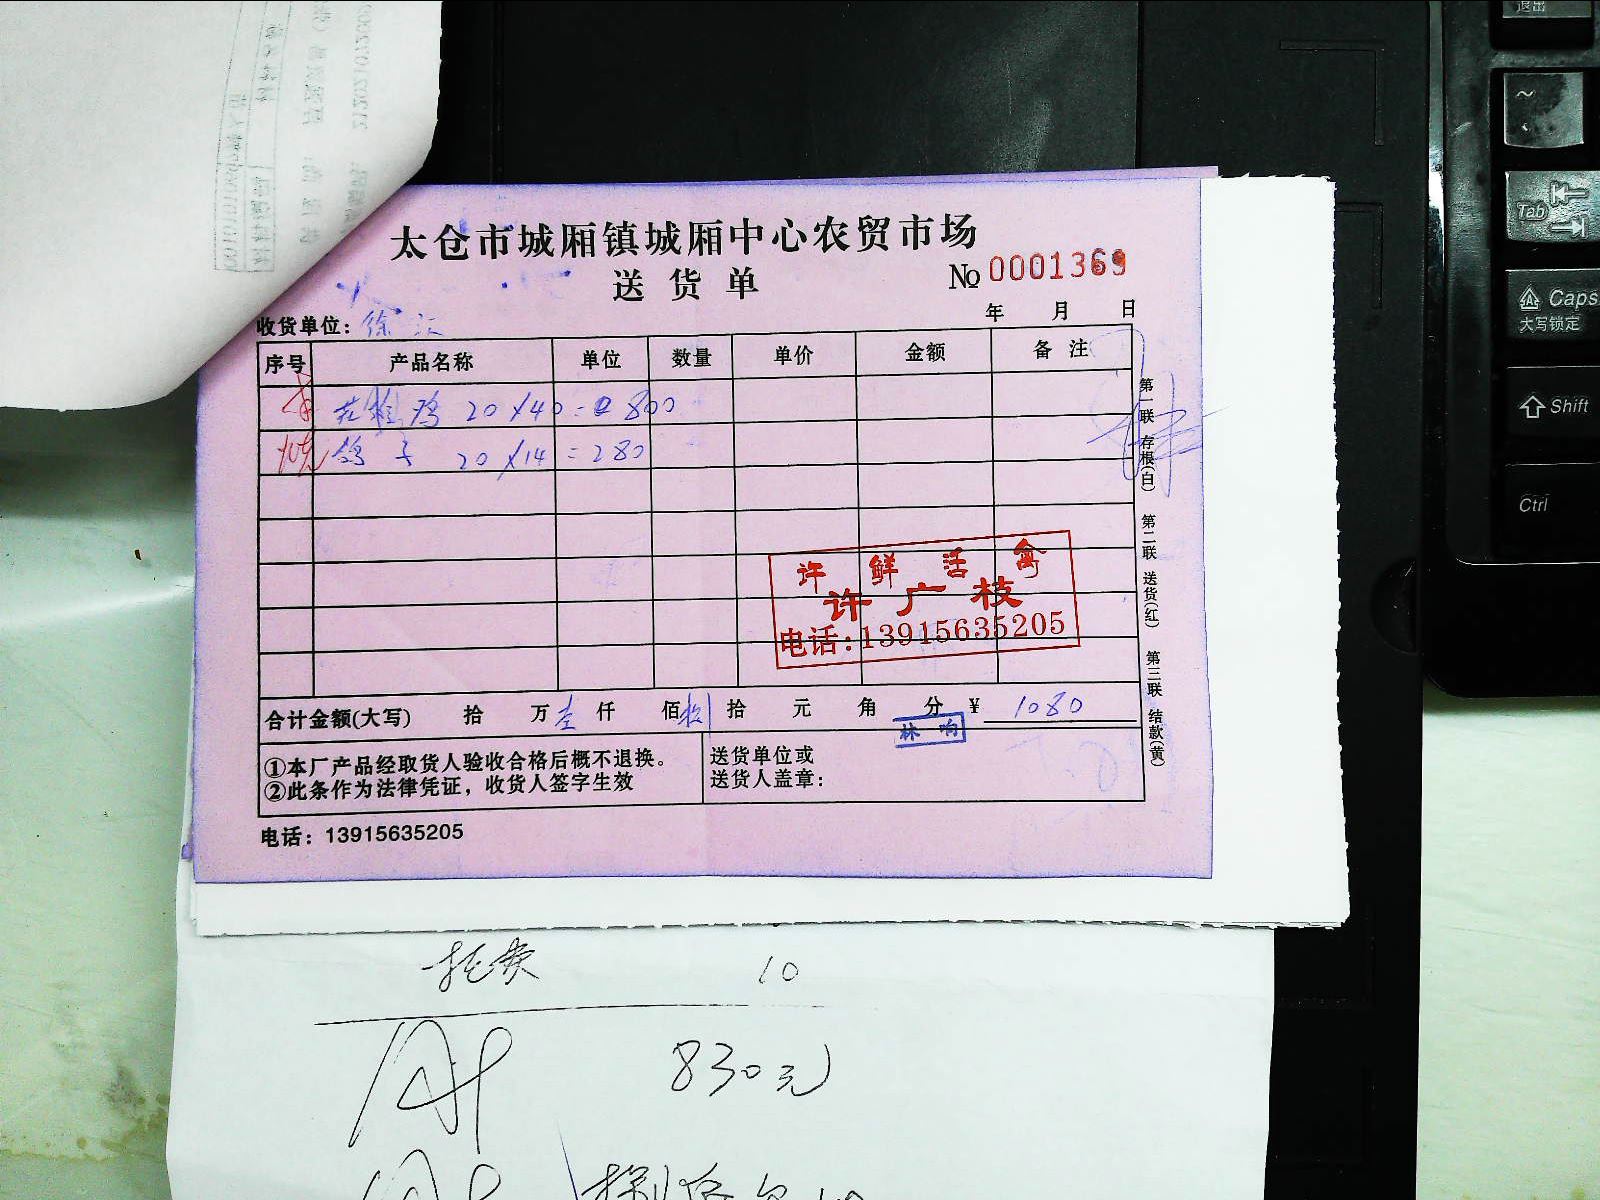 太仓市城厢镇城厢中心农贸市场
送货单
No 0001369
收货单位: 徐
年 月 日
序号 产品名称 单位 数量 单价 金额 备注
鸡 20×40=800
鸽子 20×14=280
许鲜活禽
许广枝
电话:13915635205
合计金额(大写) 拾 万壹仟 佰捌拾 元 角 分 ¥ 1080
林响
①本厂产品经取货人验收合格后概不退换。
②此条作为法律凭证,收货人签字生效
送货单位或
送货人盖章:
电话: 13915635205
第一联 存根(白) 第二联 送货(红) 第三联 结款(黄)
10
830元
退出
~
Tab
Caps
大写锁定
Shift
Ctrl